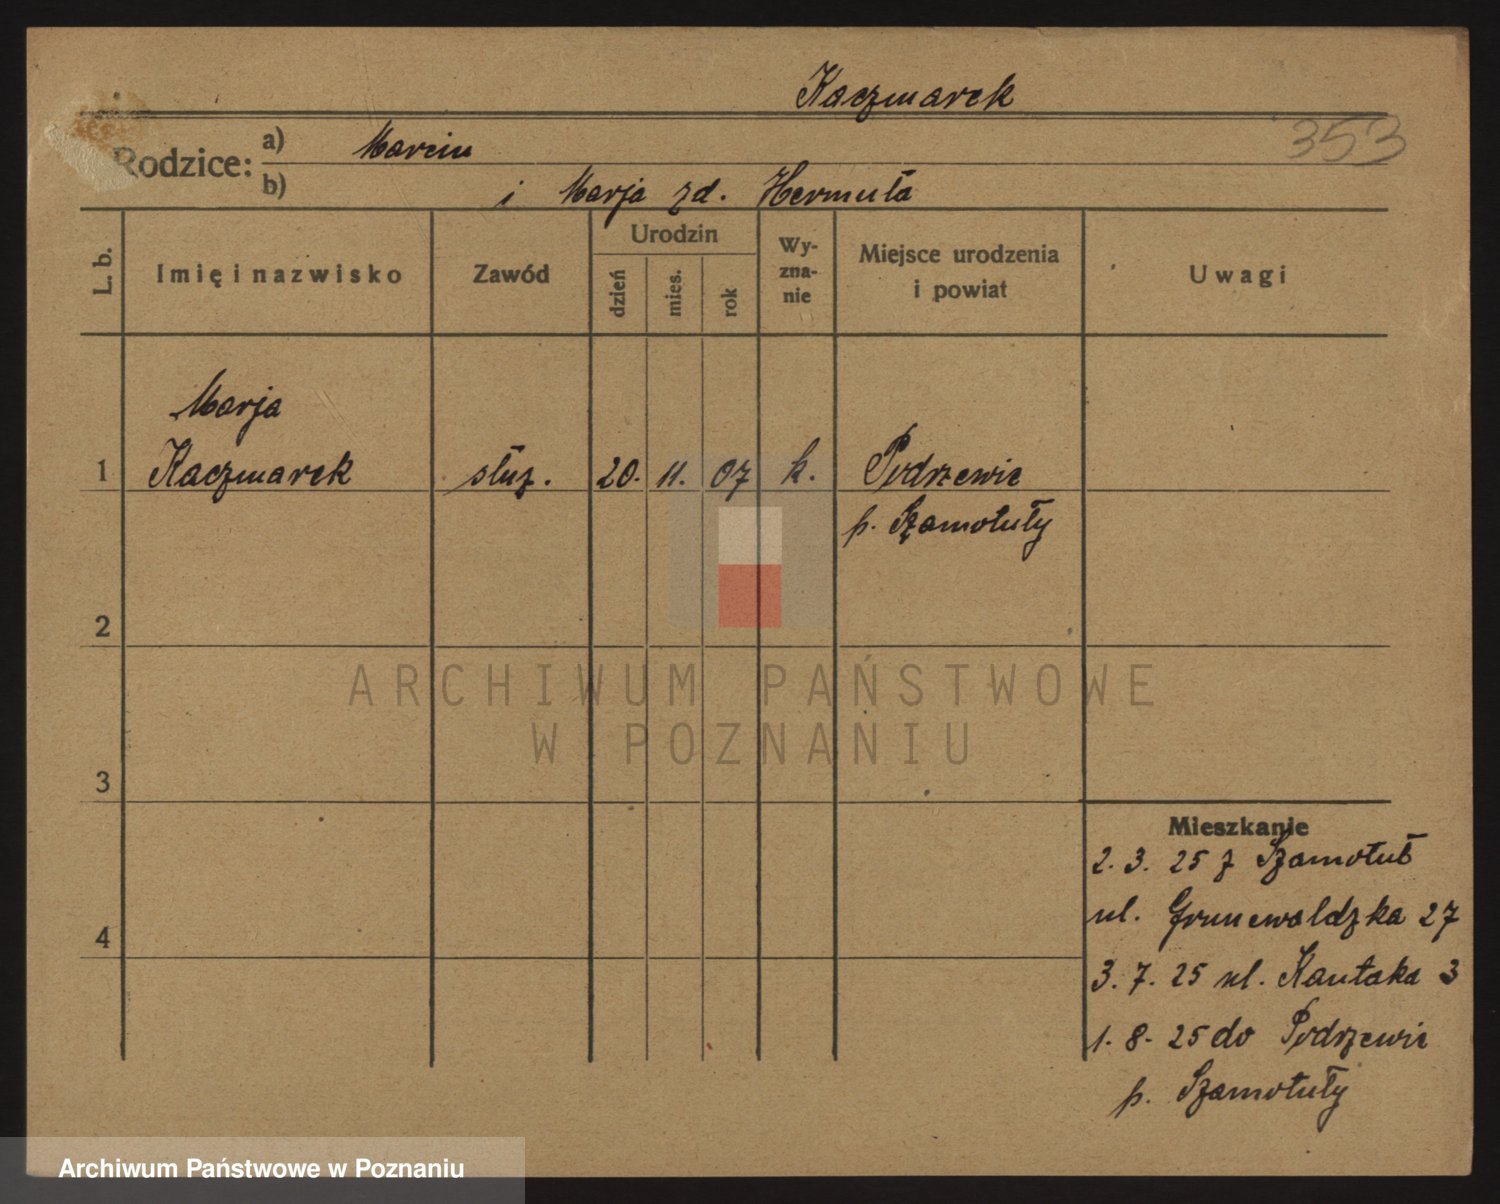 Kaczmarek
353
Rodzice:
a) Marcin
b) i Marja zd. Hermuła
L. b.
Imię i nazwisko
Zawód
Urodzin
dzień
mies.
rok
Wy-
zna-
nie
Miejsce urodzenia
i powiat
Uwagi
Marja
1 Kaczmarek służ. 20. 11. 07 k. Podrzewie
p. Szamotuły
2
3
4
Mieszkanie
2. 3. 25 z Szamotuł
ul. Grunewaldzka 27
3. 7. 25 ul. Kantaka 3
1. 8. 25 do Podrzewie
p. Szamotuły
ARCHIWUM PAŃSTWOWE
W POZNANIU
Archiwum Państwowe w Poznaniu